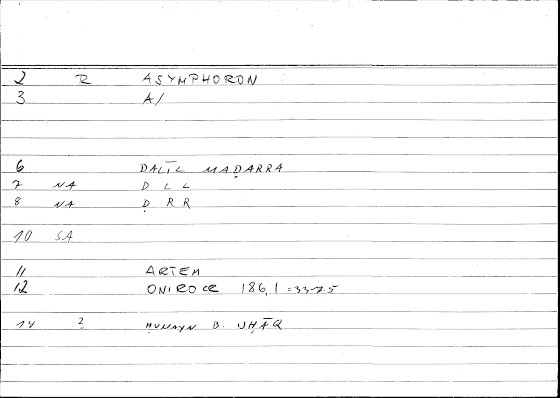 2 R ASYMPHORON
3 A/
6 DALĪL MAḌARRA
7 NA D L L
8 NA Ḍ R R
10 SA
11 ARTEM
12 ONIROCR 186,1 = 33-2.5
14 2 ḤUNAYN B. ISḤĀQ